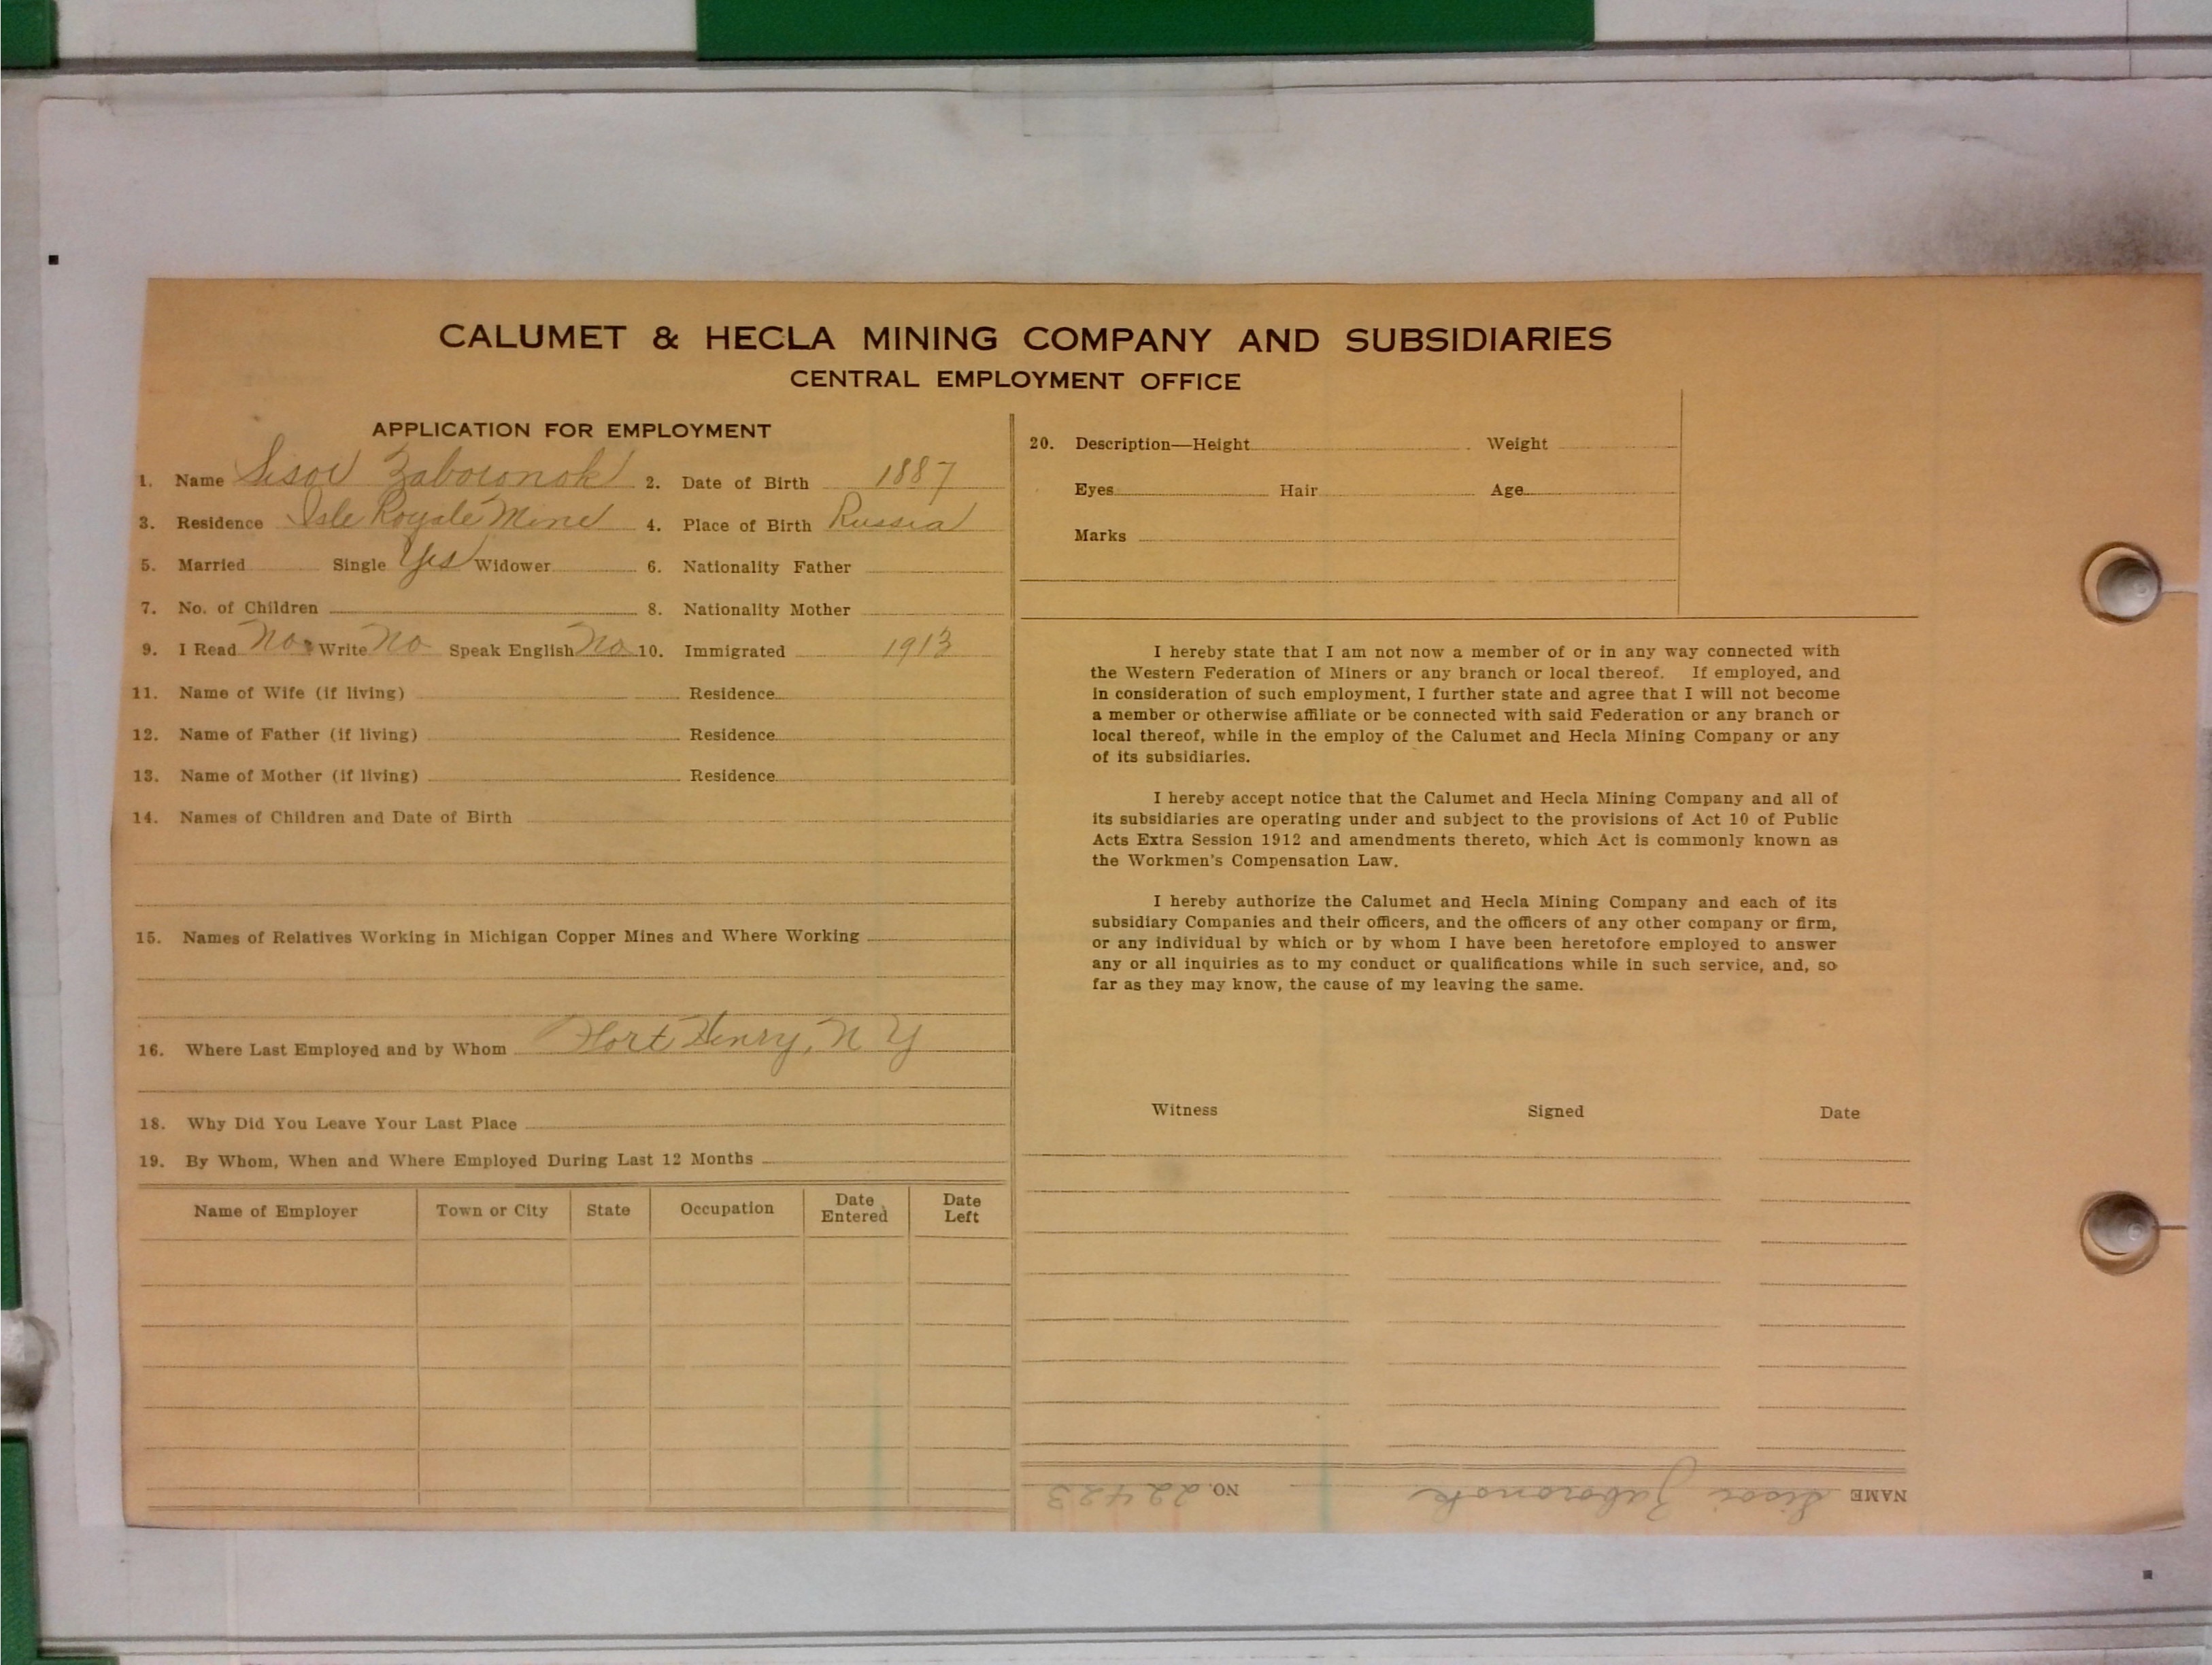 CALUMET & HECLA MINING COMPANY AND SUBSIDIARIES
CENTRAL EMPLOYMENT OFFICE
APPLICATION FOR EMPLOYMENT
1. Name Sisoi Zaboronok 2. Date of Birth 1887
3. Residence Isle Royale Mine 4. Place of Birth Russia
5. Married Single Yes Widower 6. Nationality Father
7. No. of Children 8. Nationality Mother
9. I Read No Write No Speak English No 10. Immigrated 1913
11. Name of Wife (if living) Residence
12. Name of Father (if living) Residence
13. Name of Mother (if living) Residence
14. Names of Children and Date of Birth
15. Names of Relatives Working in Michigan Copper Mines and Where Working
16. Where Last Employed and by Whom Port Henry, N Y
18. Why Did You Leave Your Last Place
19. By Whom, When and Where Employed During Last 12 Months
Name of Employer Town or City State Occupation Date Entered Date Left
20. Description—Height Weight
Eyes Hair Age
Marks
I hereby state that I am not now a member of or in any way connected with
the Western Federation of Miners or any branch or local thereof. If employed, and
in consideration of such employment, I further state and agree that I will not become
a member or otherwise affiliate or be connected with said Federation or any branch or
local thereof, while in the employ of the Calumet and Hecla Mining Company or any
of its subsidiaries.
I hereby accept notice that the Calumet and Hecla Mining Company and all of
its subsidiaries are operating under and subject to the provisions of Act 10 of Public
Acts Extra Session 1912 and amendments thereto, which Act is commonly known as
the Workmen's Compensation Law.
I hereby authorize the Calumet and Hecla Mining Company and each of its
subsidiary Companies and their officers, and the officers of any other company or firm,
or any individual by which or by whom I have been heretofore employed to answer
any or all inquiries as to my conduct or qualifications while in such service, and, so
far as they may know, the cause of my leaving the same.
Witness Signed Date
NAME Sisoi Zaboronok NO. 22423